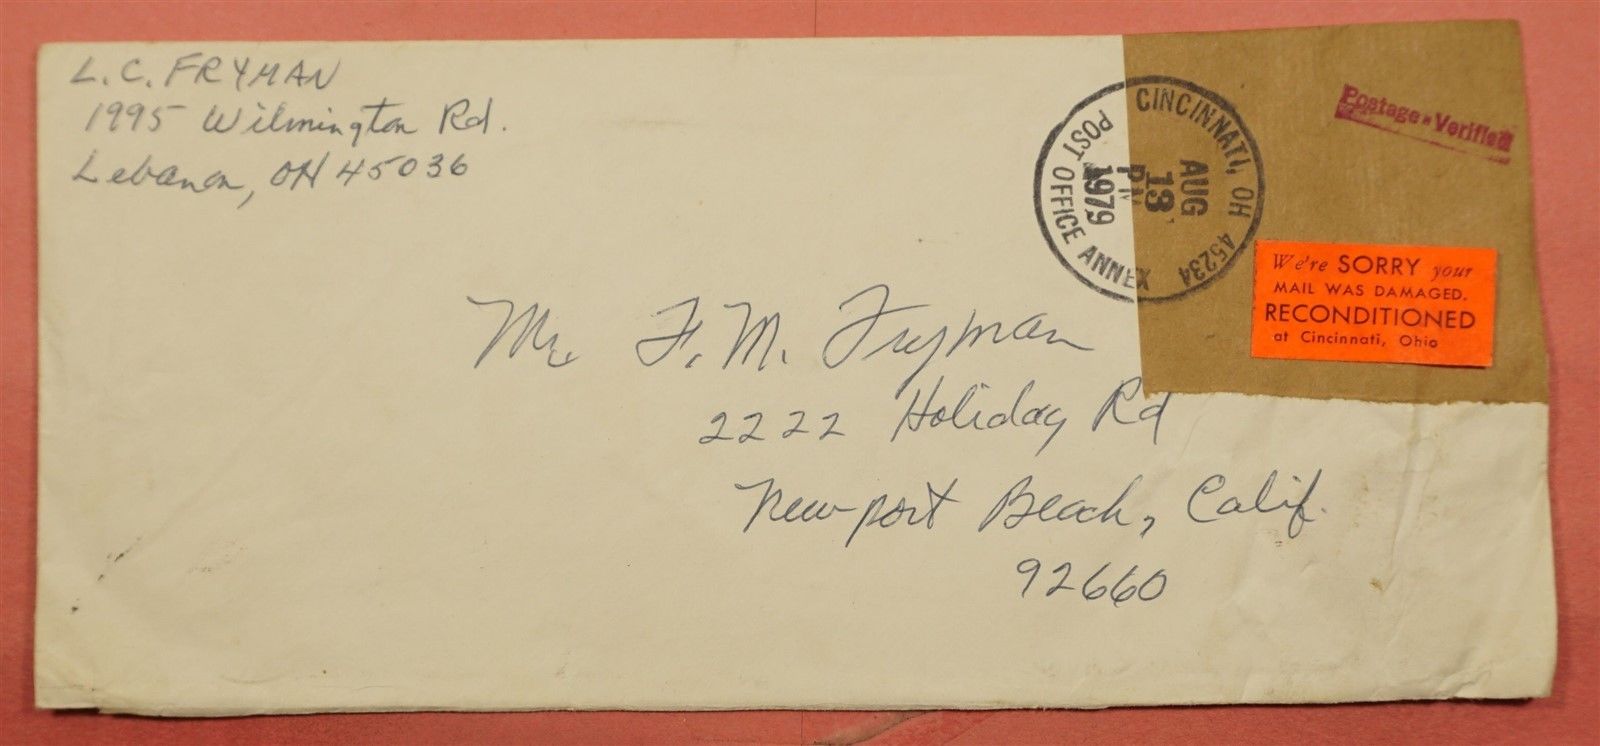 L. C. FRYMAN
1995 Wilmington Rd.
Lebanon, OH 45036
CINCINNATI, OH 45234
AUG
13
PM
1979
POST OFFICE ANNEX
Postage Verified
We're SORRY your
MAIL WAS DAMAGED.
RECONDITIONED
at Cincinnati, Ohio
Mr F. M. Fryman
2222 Holiday Rd
Newport Beach, Calif.
92660